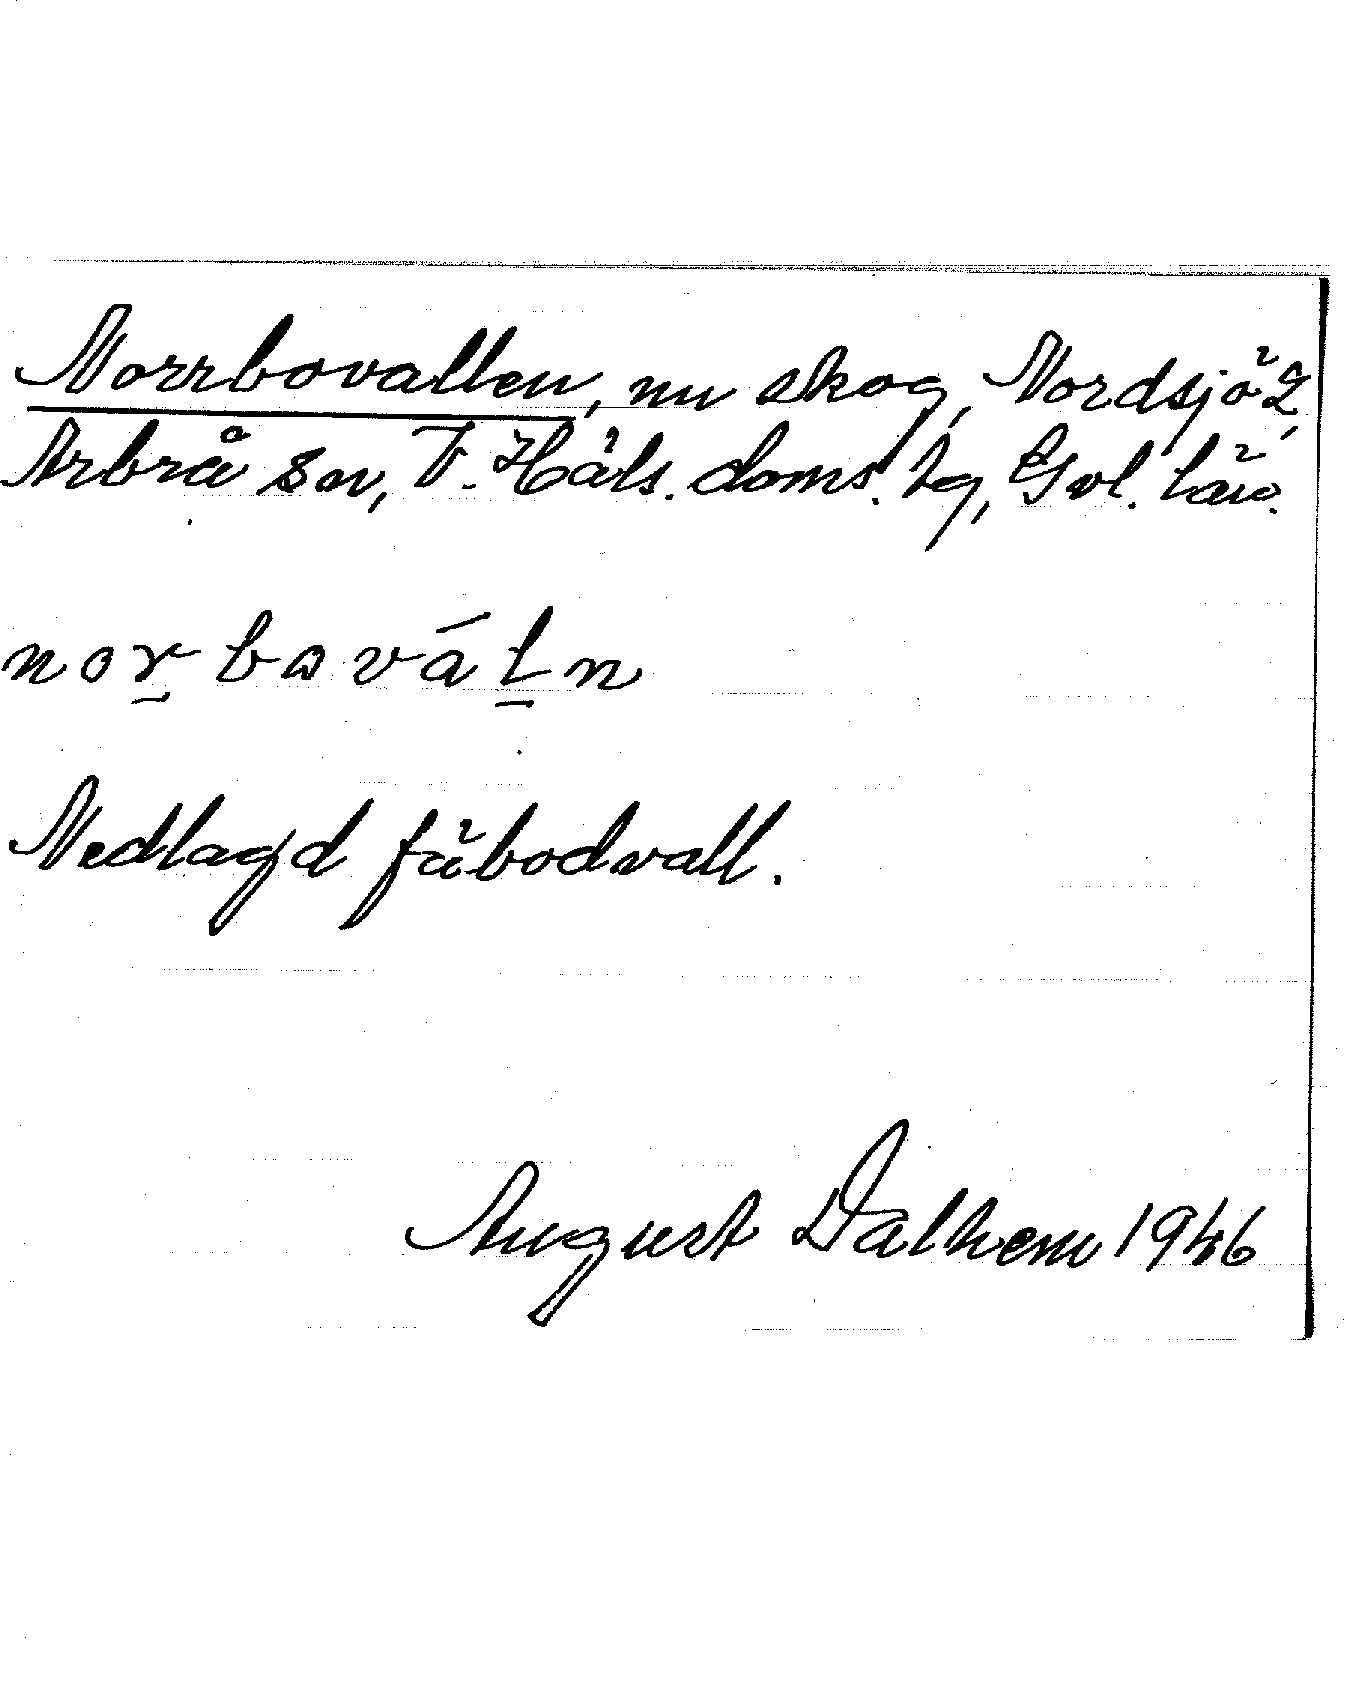 Norrbovallen, nu skog, Nordsjö 2,
Arbrå sn, V. Häls. doms. hg, Gvl. län.
nor̲bavál̲n
Nedlagd fäbodvall.
August Dalhem 1946